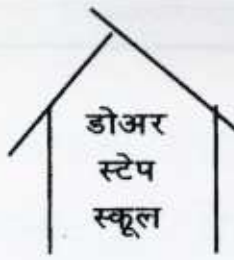 डोअर
स्टेप
स्कूल